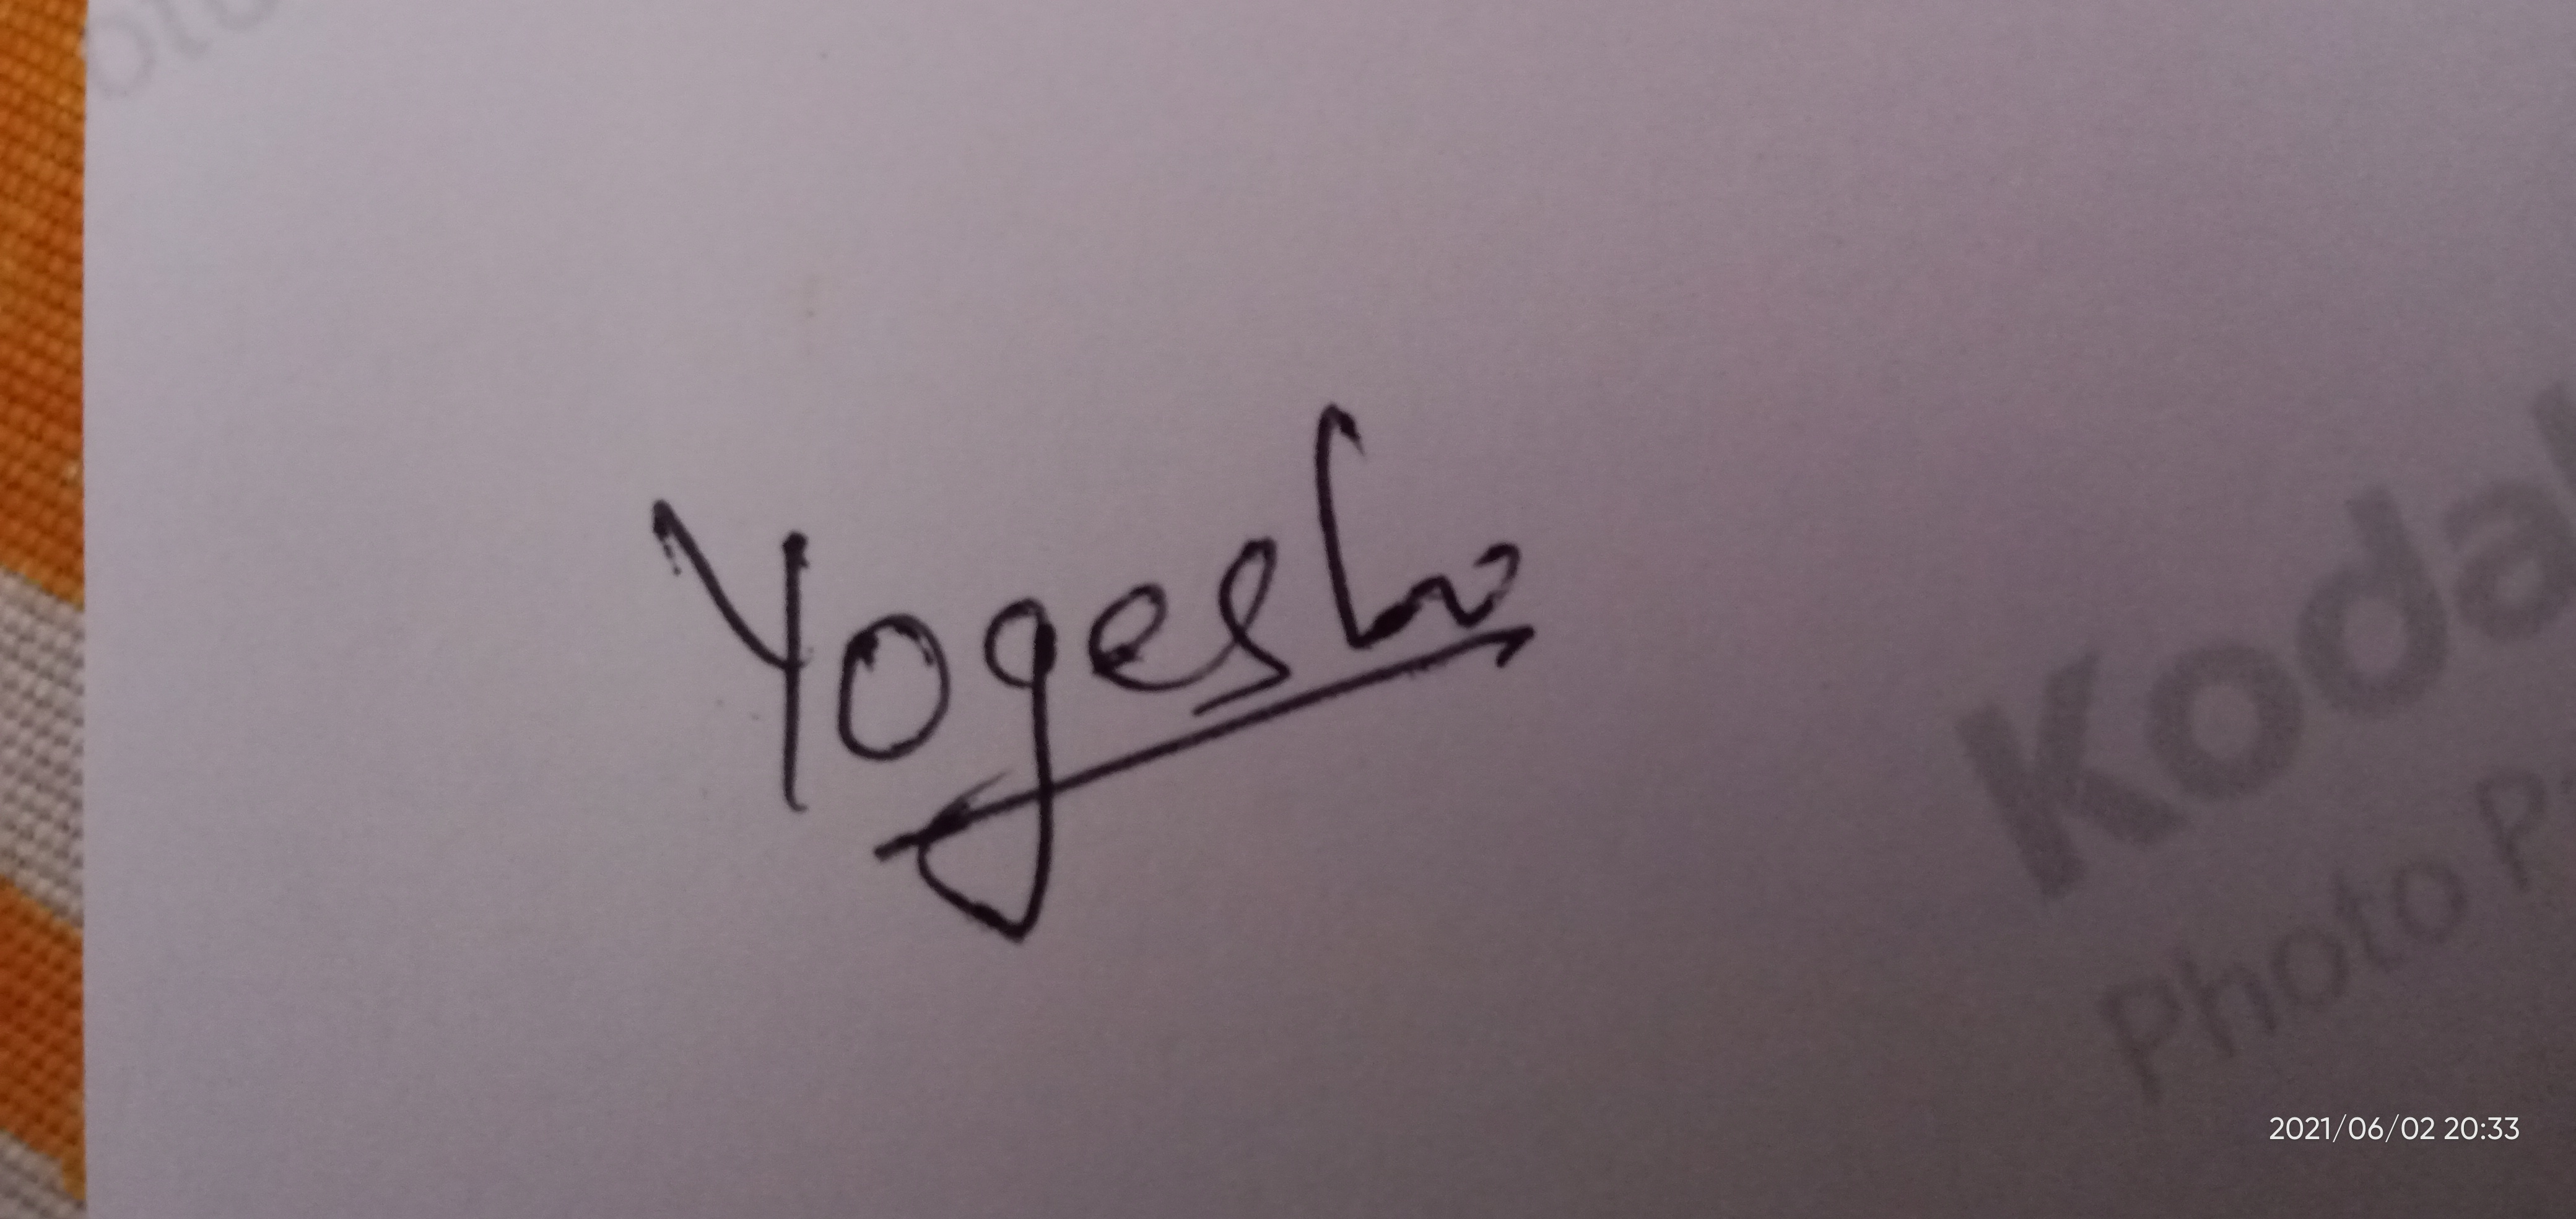 Yogesh
Kodak
Photo P
2021/06/02 20:33